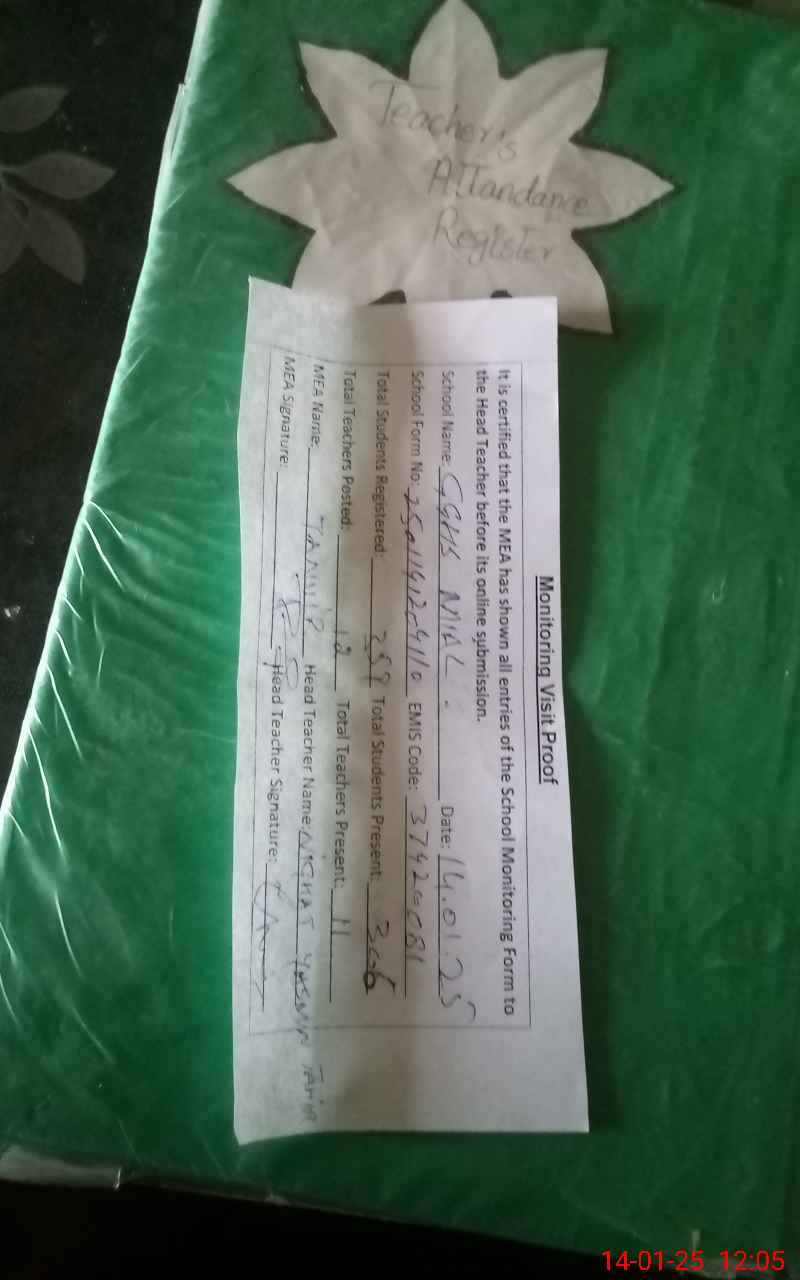 Teacher's
Attandance
Register
Monitoring Visit Proof
It is certified that the MEA has shown all entries of the School Monitoring Form to
the Head Teacher before its online submission.
School Name: GGHS MIAL. Date: 14.01.25
School Form No: EMIS Code:
Total Students Registered: Total Students Present: 306
Total Teachers Posted: 12 Total Teachers Present: 11
MEA Name: Head Teacher Name: NIGHAT YASMIN
MEA Signature: Head Teacher Signature:
14-01-25 12:05